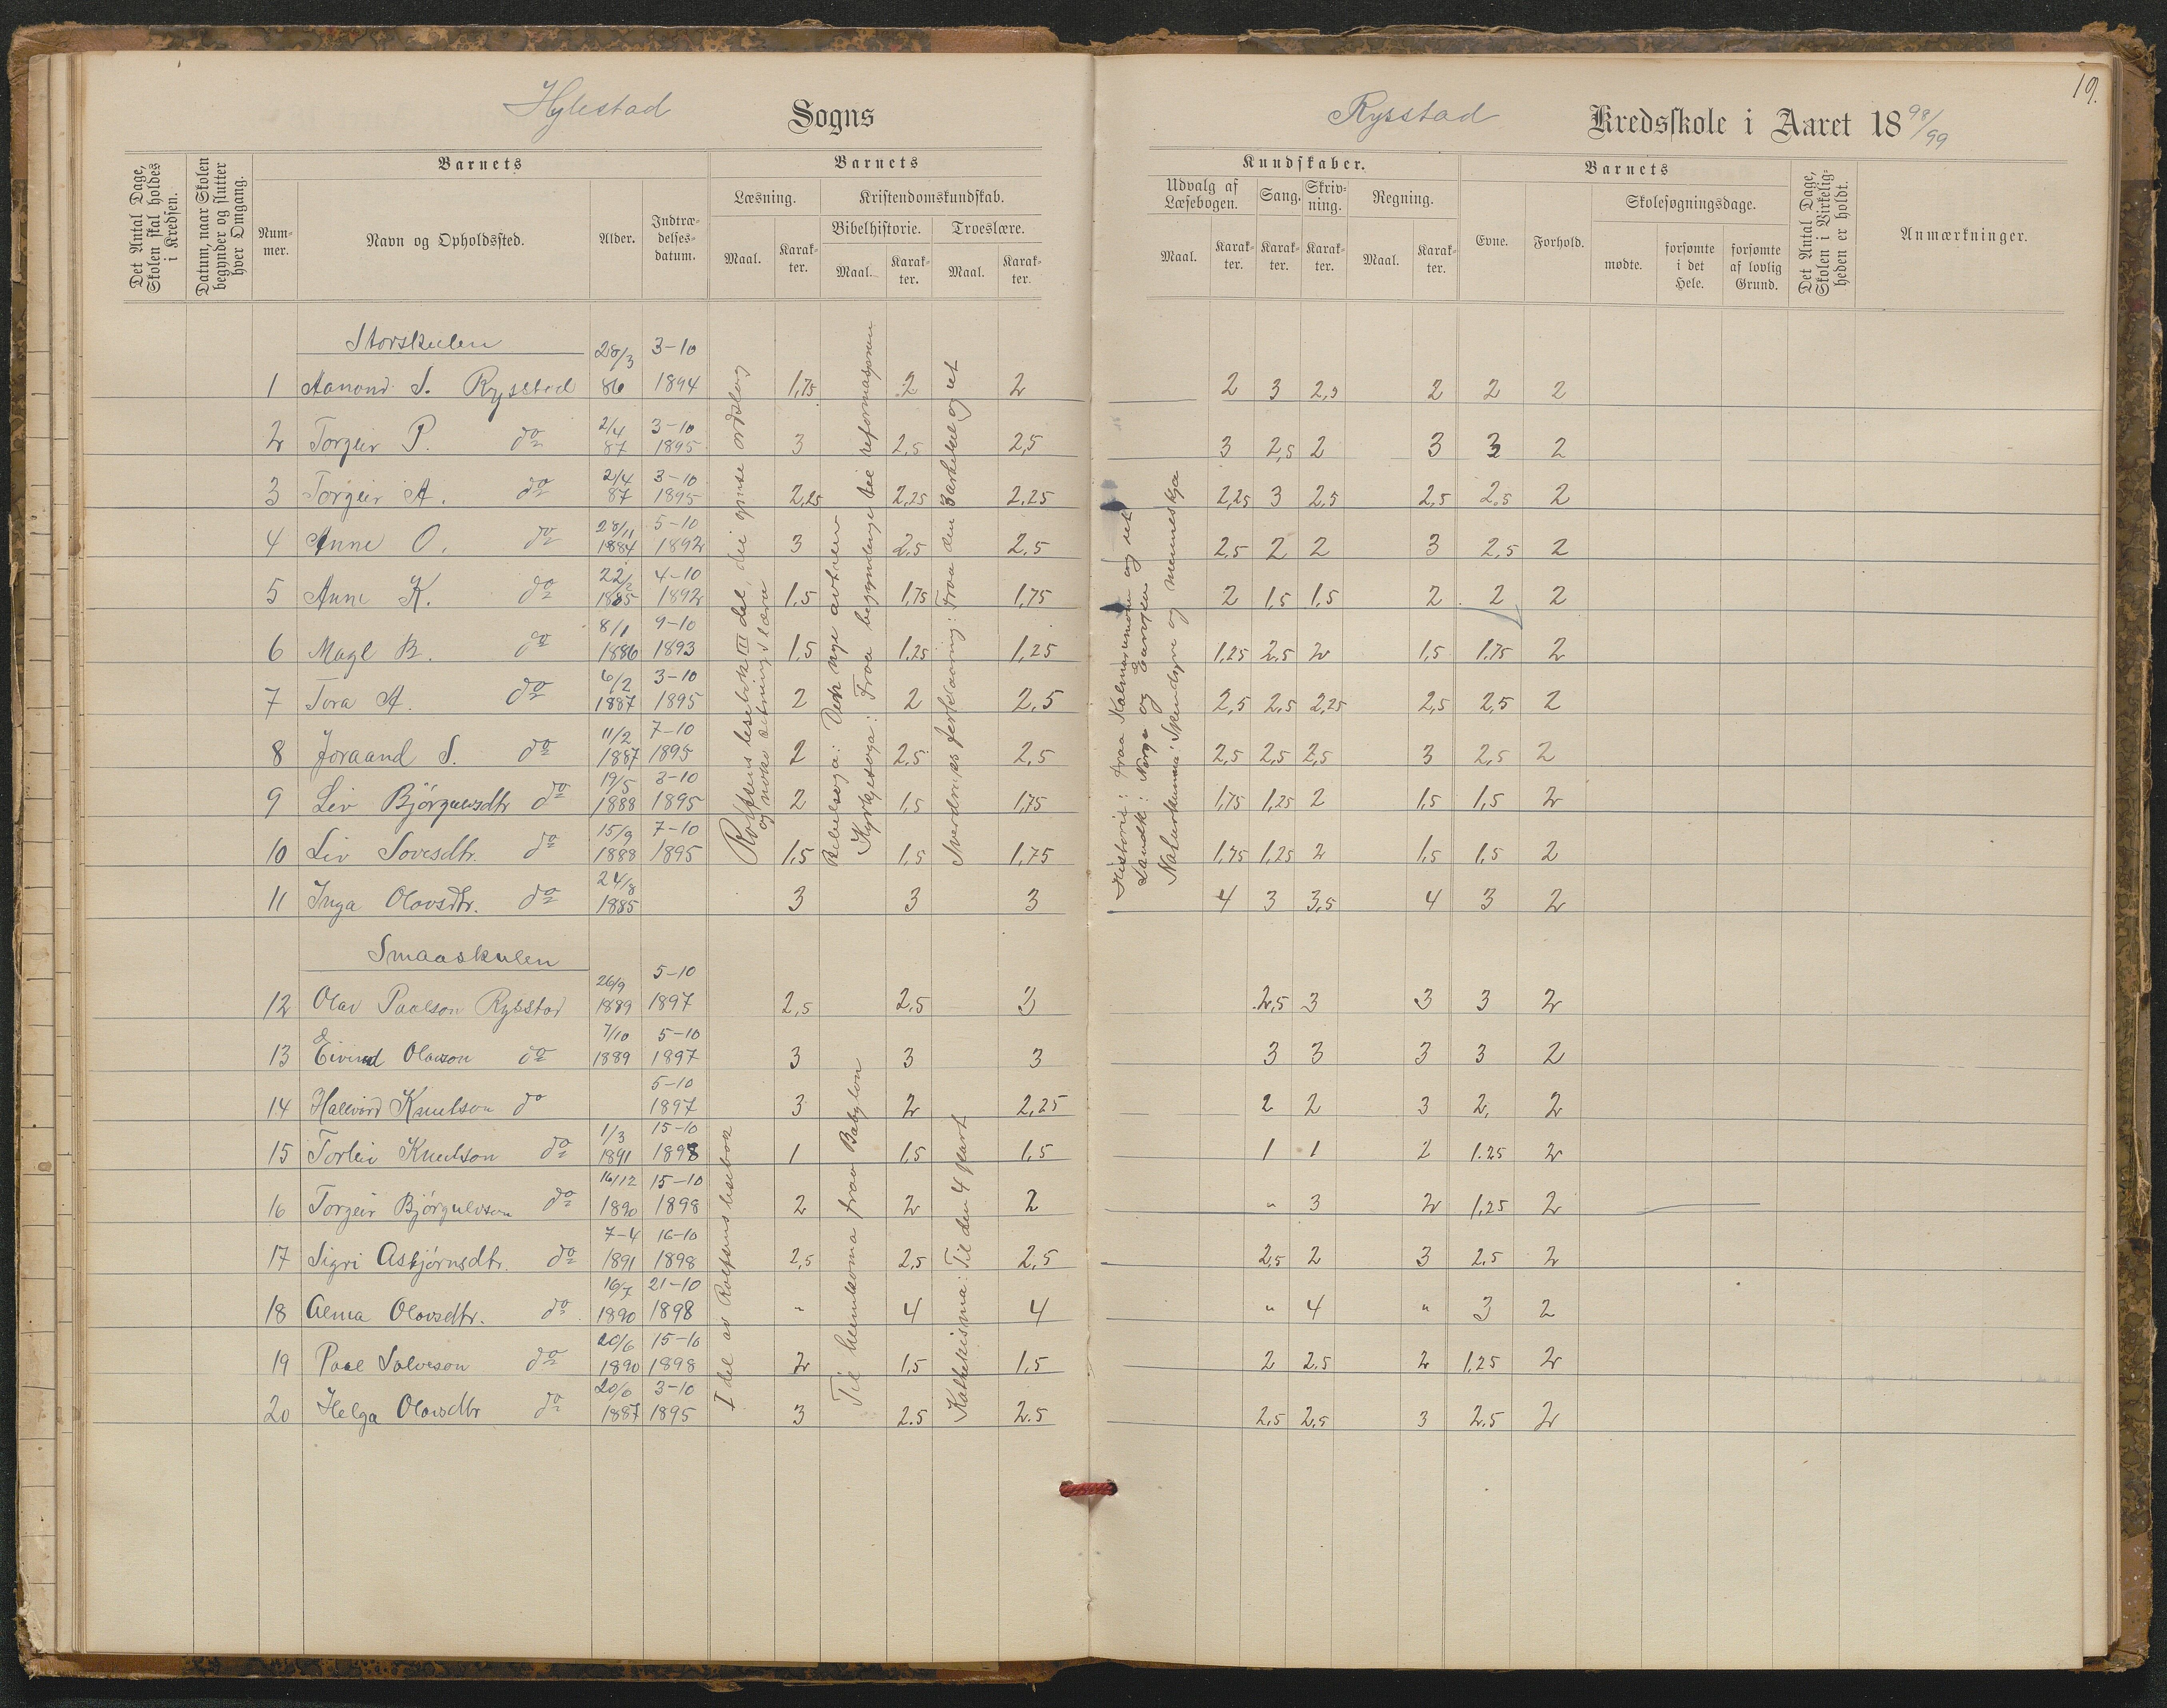 19.
Hylestad Sogns
Rysstad Kredsskole i Aaret 18 98/99
Det Antal Dage, Skolen skal holdes i Kredsen.
Datum, naar Skolen begynder og slutter hver Omgang.
Barnets
Nummer.
Navn og Opholdssted.
Alder.
Indtrædelsesdatum.
Barnets
Læsning.
Maal.
Karakter.
Kristendomskundskab.
Bibelhistorie.
Maal.
Karakter.
Troeslære.
Maal.
Karakter.
Kundskaber.
Udvalg af Læsebogen.
Maal.
Karakter.
Sang.
Karakter.
Skrivning.
Karakter.
Regning.
Maal.
Karakter.
Barnets
Evne.
Forhold.
Skolesøgningsdage.
mødte.
forsømte i det Hele.
forsømte af lovlig Grund.
Det Antal Dage, Skolen i Virkeligheden er holdt.
Anmærkninger.
Storskulen
1 Aanond S. Rysstad 28/3 86 3-10 1894 1,75 2 2 2 3 2,5 2 2 2
2 Torgeir P. do 2/4 87 3-10 1895 3 2,5 2,5 3 2,5 2 3 3 2
3 Torgeir A. do 21/4 87 3-10 1895 2,25 2,25 2,25 2,25 3 2,5 2,5 2,5 2
4 Anne O. do 28/11 1884 5-10 1892 3 2,5 2,5 2,5 2 2 3 2,5 2
5 Anne K. do 22/2 1885 4-10 1892 1,5 1,75 1,75 2 1,5 1,5 2 2 2
6 Magl B. do 8/1 1886 9-10 1893 1,5 1,25 1,25 1,25 2,5 2 1,5 1,75 2
7 Tora A. do 6/2 1887 3-10 1895 2 2 2,5 2,5 2,5 2,25 2,5 2,5 2
8 Joraand S. do 11/2 1887 7-10 1895 2 2,5 2,5 2,5 2,5 2,5 3 2,5 2
9 Liv Bjórguvsdtr do 19/5 1888 3-10 1895 2 1,5 1,75 1,75 1,25 2 1,5 1,5 2
10 Liv Sovesdtr. do 15/9 1888 7-10 1895 1,5 1,5 1,75 1,75 1,25 2 1,5 1,5 2
11 Inga Olovsdtr. do 24/8 1885 3 3 3 4 3 3,5 4 3 2
Rolfsens lesebok III del, dei gjense ordslag
og noko setningslæra
Bibelsoga: Den nye avtalen
Kyrkjesoga: Fraa begynninge tie reformasjonen
Sverdrups forklaaring: fraa den 3 artikkel og ut
Historie: fraa Kalmarunionen og ut
Landk: Norge og Europa
Naturkunna: Skendsyre og menneskja
Smaaskulen
12 Olav Paalson Rysstad 26/9 1889 5-10 1897 2,5 2.5 3 2,5 3 3 3 2
13 Eivind Olavson do 7/10 1889 5-10 1897 3 3 3 3 3 3 3 2
14 Hallvard Knutson do 5-10 1897 3 2 2,25 2 2 3 2, 2
15 Torleiv Knutson do 1/3 1891 15-10 1898 1 1,5 1,5 1 1 2 1.25 2
16 Torgeir Bjórgulvson do 16/12 1890 15-10 1898 2 2 2 " 3 2 1,25 2
17 Sigri Asbjórnsdtr. do 7-4 1891 16-10 1898 2,5 2,5 2,5 2,5 2 3 2.5 2
18 Alma Olovsdtr. do 16/7 1890 21-10 1898 " 4 4 " 4 " 3 2
19 Paal Salveson do 20/6 1890 15-10 1898 2 1,5 1,5 2 2.5 2 1,25 2
20 Helga Olovsdtr do 20/6 1887 3-10 1895 3 2.5 2.5 2,5 2,5 3 2.5 2
I del av Rolfsens lesebok
Til heimkoma fraa Babylon
Kathekisma: Til den 4 part